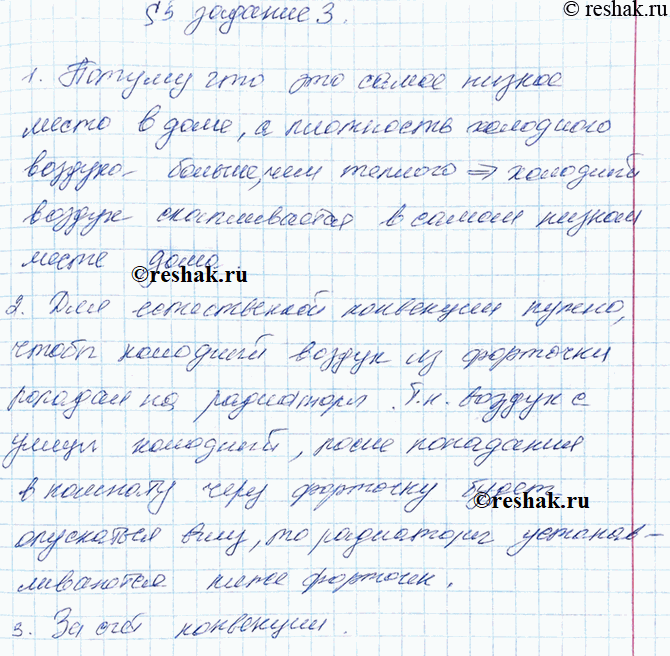 © reshak.ru
§5 задание 3.
1. Потому что это самое низкое
место в доме, а плотность холодного
воздуха больше, чем теплого ⇒ холодный
воздух скапливается в самом низком
месте дома
© reshak.ru
2. Для естественной конвекции нужно,
чтобы холодный воздух из форточки
попадал на радиаторы. Т.к. воздух с
улицы холодный, после попадания
в комнату через форточку будет
© reshak.ru
опускаться вниз, то радиаторы устанав-
ливаются ниже форточек.
3. За счёт конвекции.